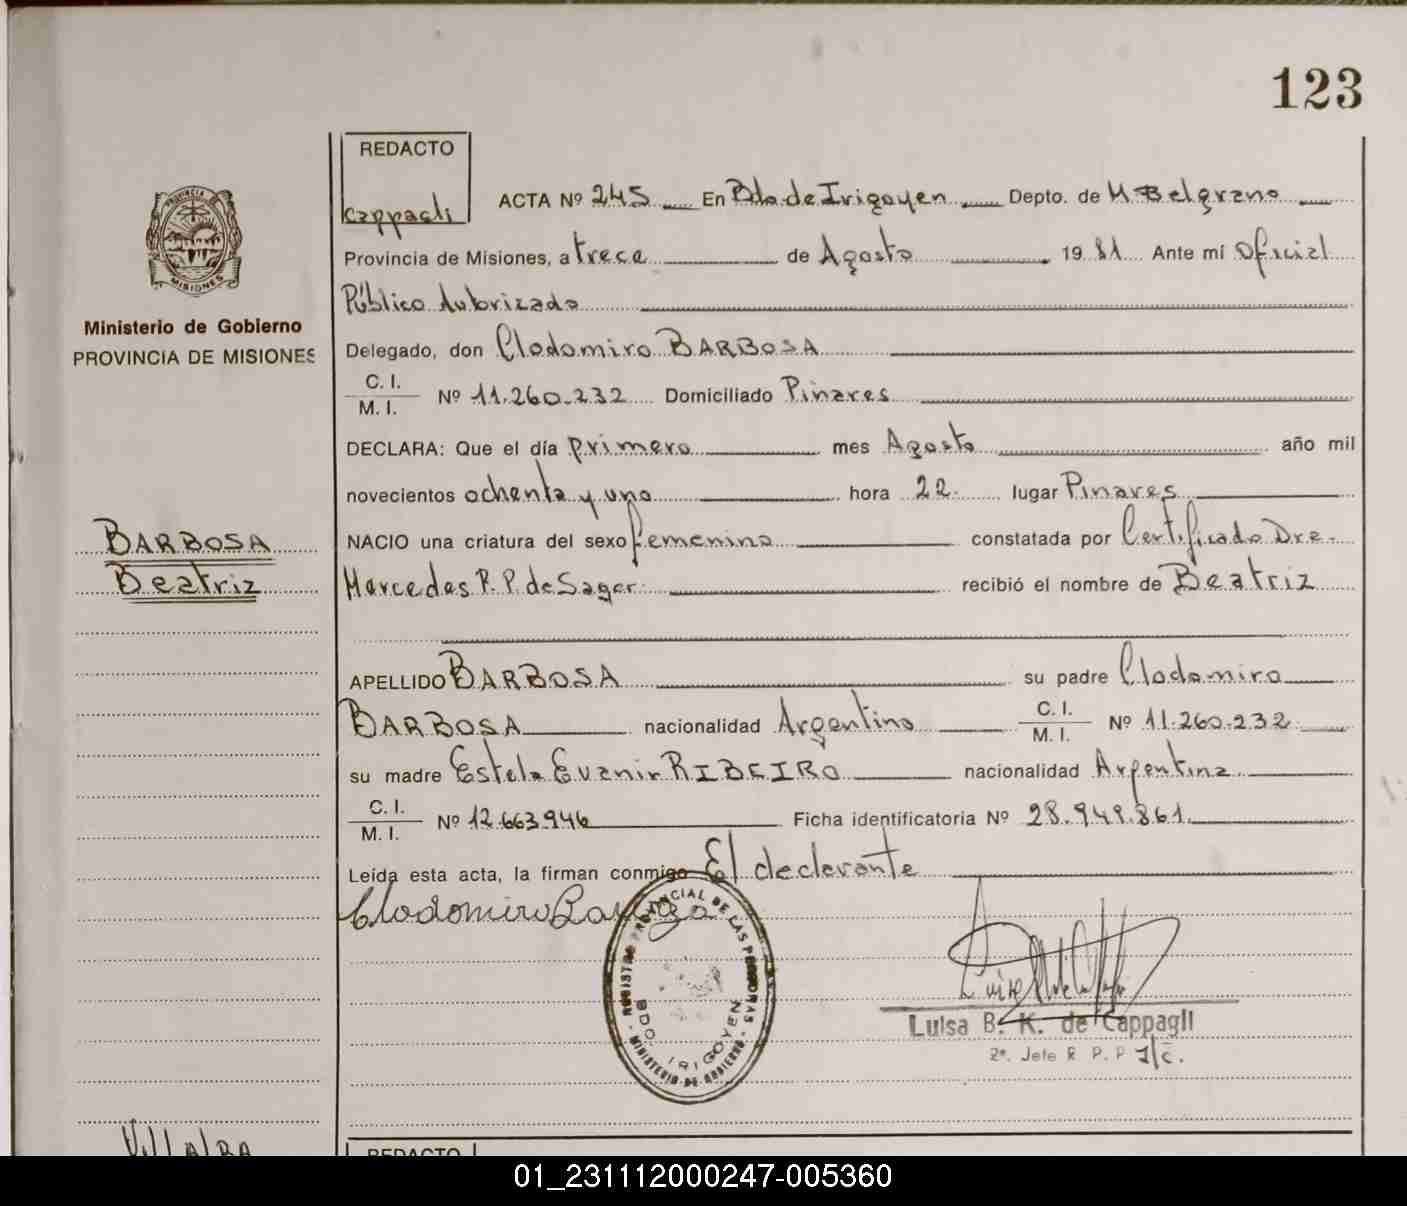 123
REDACTO
Cappagli
ACTA Nº 245 En Bdo de Irigoyen Depto. de M Belgrano
Provincia de Misiones, a trece de Agosto 19 81 Ante mí Oficial
Público Autorizado
Delegado, don Clodomiro BARBOSA
C. I.
M. I. Nº 11.260.232 Domiciliado Pinares
DECLARA: Que el día primero mes Agosto año mil
novecientos ochenta y uno hora 22. lugar Pinares
NACIO una criatura del sexo femenino constatada por Certificado Dra.
Mercedes R. P. de Sager recibió el nombre de Beatriz
APELLIDO BARBOSA su padre Clodomiro
BARBOSA nacionalidad Argentino C. I. M. I. Nº 11.260.232
su madre Estela Evanir RIBEIRO nacionalidad Argentina
C. I.
M. I. Nº 12.663.946 Ficha identificatoria Nº 28.948.861.
Leída esta acta, la firman conmigo El declarante
Clodomiro Barboza
REGISTRO PROVINCIAL DE LAS PERSONAS
BDO. IRIGOYEN
MINISTERIO DE GOBIERNO
Luisa B. K. de Cappagli
2º. Jefe R. P. P. I/C.
PROVINCIA DE
MISIONES
Ministerio de Gobierno
PROVINCIA DE MISIONES
BARBOSA
Beatriz
VILLALBA
REDACTO
01_231112000247-005360